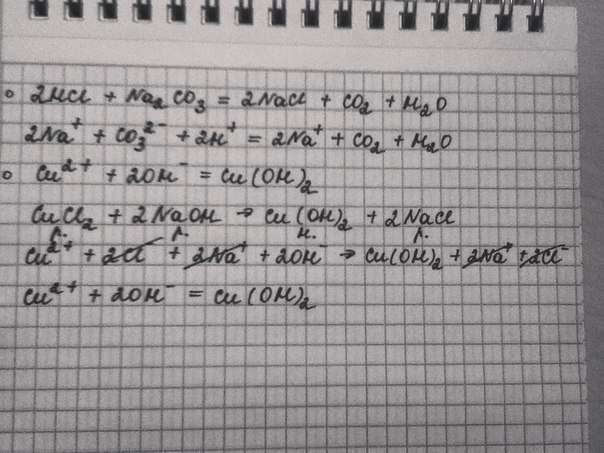 2HCl + Na₂CO₃ = 2NaCl + CO₂ + H₂O
2Na⁺ + CO₃²⁻ + 2H⁺ = 2Na⁺ + CO₂ + H₂O
Cu²⁺ + 2OH⁻ = Cu(OH)₂
CuCl₂ + 2NaOH → Cu(OH)₂ + 2NaCl
р. р. н. р.
Cu²⁺ + 2Cl⁻ + 2Na⁺ + 2OH⁻ → Cu(OH)₂ + 2Na⁺ + 2Cl⁻
Cu²⁺ + 2OH⁻ = Cu(OH)₂